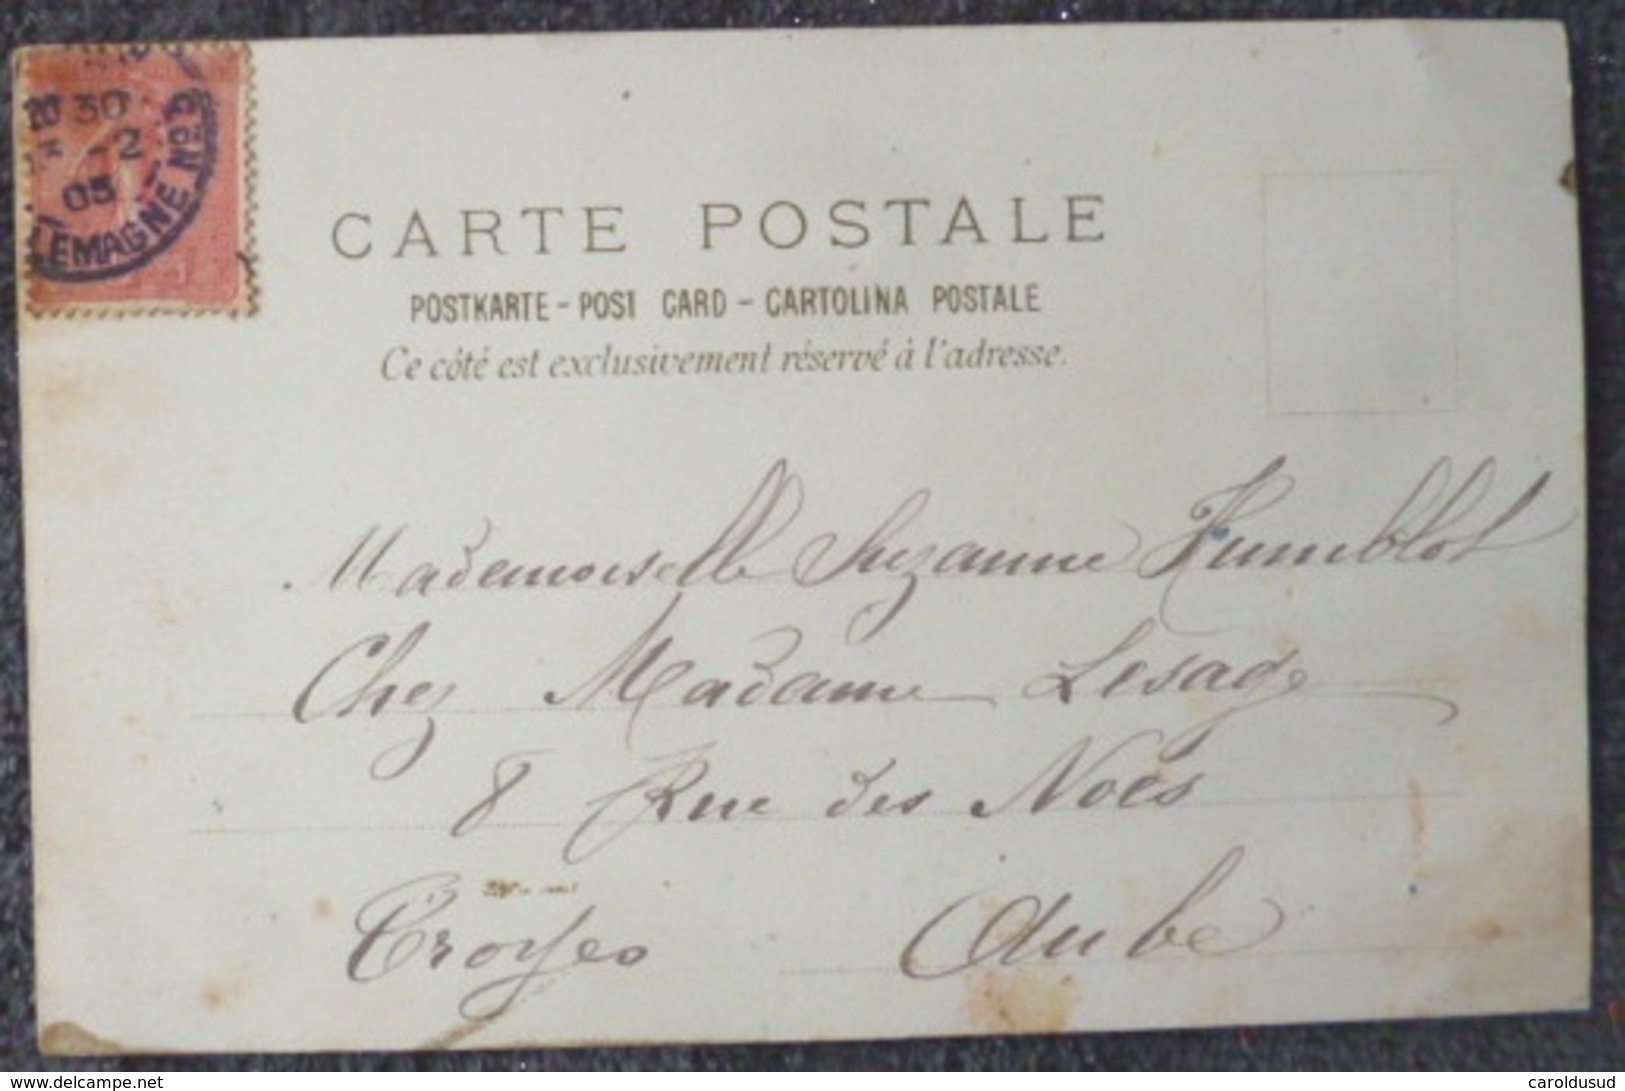 20 30
-2
05
LEMAGNE No 3
CARTE POSTALE
POSTKARTE - POST CARD - CARTOLINA POSTALE
Ce côté est exclusivement réservé à l'adresse.
Mademoiselle Suzanne Humblot
Chez Madame Lesage
8 Rue des Noës
Troyes Aube
www.delcampe.net
caroldusud